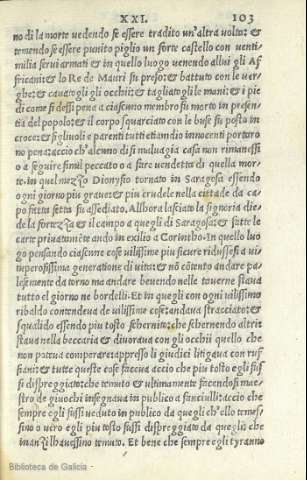 XXI. 103
no di la morte uedendo se essere tradito un'altra uolta: &
temendo se essere punito piglio un forte castello con uenti
milia serui armati & in quello luogo uenendo allui gli Af
fricani: & lo Re de Mauri fu preso: & battuto con le uer
ghe: & cauatogli gli occhi: & tagliatogli le mani: & i pie
di come si dessi pena a ciascuno membro fu morto in presen
tia del popolo: & il corpo squarciato con le buse fu posto in
croce: & figliuoli e parenti tutti etiandio innocenti portaro
no pena: accio ch'alcuno di si maluagia casa non rimanessi
o a seguire simil peccato o a fare uendetta di quella mor
te. in quel mezzo Dionysio tornato in Saragosa essendo
ogni giorno piu graue: & piu crudele nella citta de da ca
po fatta setta fu assediato. Allhora lasciato la signoria die
de la fortezza & il campo a quegli di Saragosa: & fatte le
carte priuatom̃te ando in exilio a Corintho. In quello luo
go pensando ciascune cose uilissime piu sicure ridussesi a ui
tuperosissima generatione di uita: & nõ cõtento andare pa
lesemente da torno ma andare beuendo nelle tauerne staua
tutto el giorno ne bordelli. Et in quegli con ogni uilissimo
ribaldo contendeua de uilissime cose: andaua stracciato: &
squalido essendo piu tosto schernito: che schernendo altri:
staua nella beccaria & diuoraua con gli occhi quello che
non poteua comperare: appresso li giudici litigaua con ruf
fiani: & tutte queste cose faceua accio che piu tosto egli fus
si dispreggiato: che temuto & ultimamente facendosi mae
stro de giuochi insegnaua in publico a fanciulli: accio che
sempre egli fussi ueduto in publico da quegli ch'ello temes
sino o uero egli piu tosto fussi dispreggiato da quegli che
inanzi l'hauessino temuto. Et bene che sempre egli tyranno
Biblioteca de Galicia -